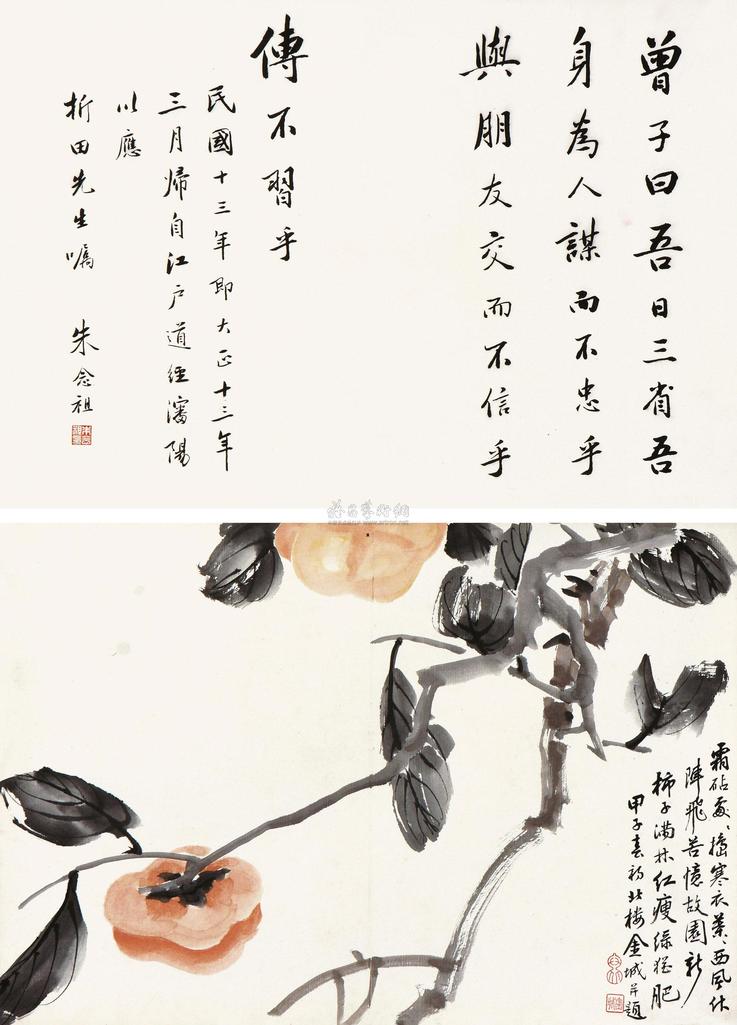 曾子曰吾日三省吾
身為人謀而不忠乎
與朋友交而不信乎
傳不習乎
民國十三年即大正十三年
三月歸自江戶道經瀋陽
以應
析田先生囑 朱念祖
霜砧處處搗寒衣葉葉西風作
陣飛苦憶故園新
柿子滿林紅瘦綠猶肥
甲子春初北樓金城并題